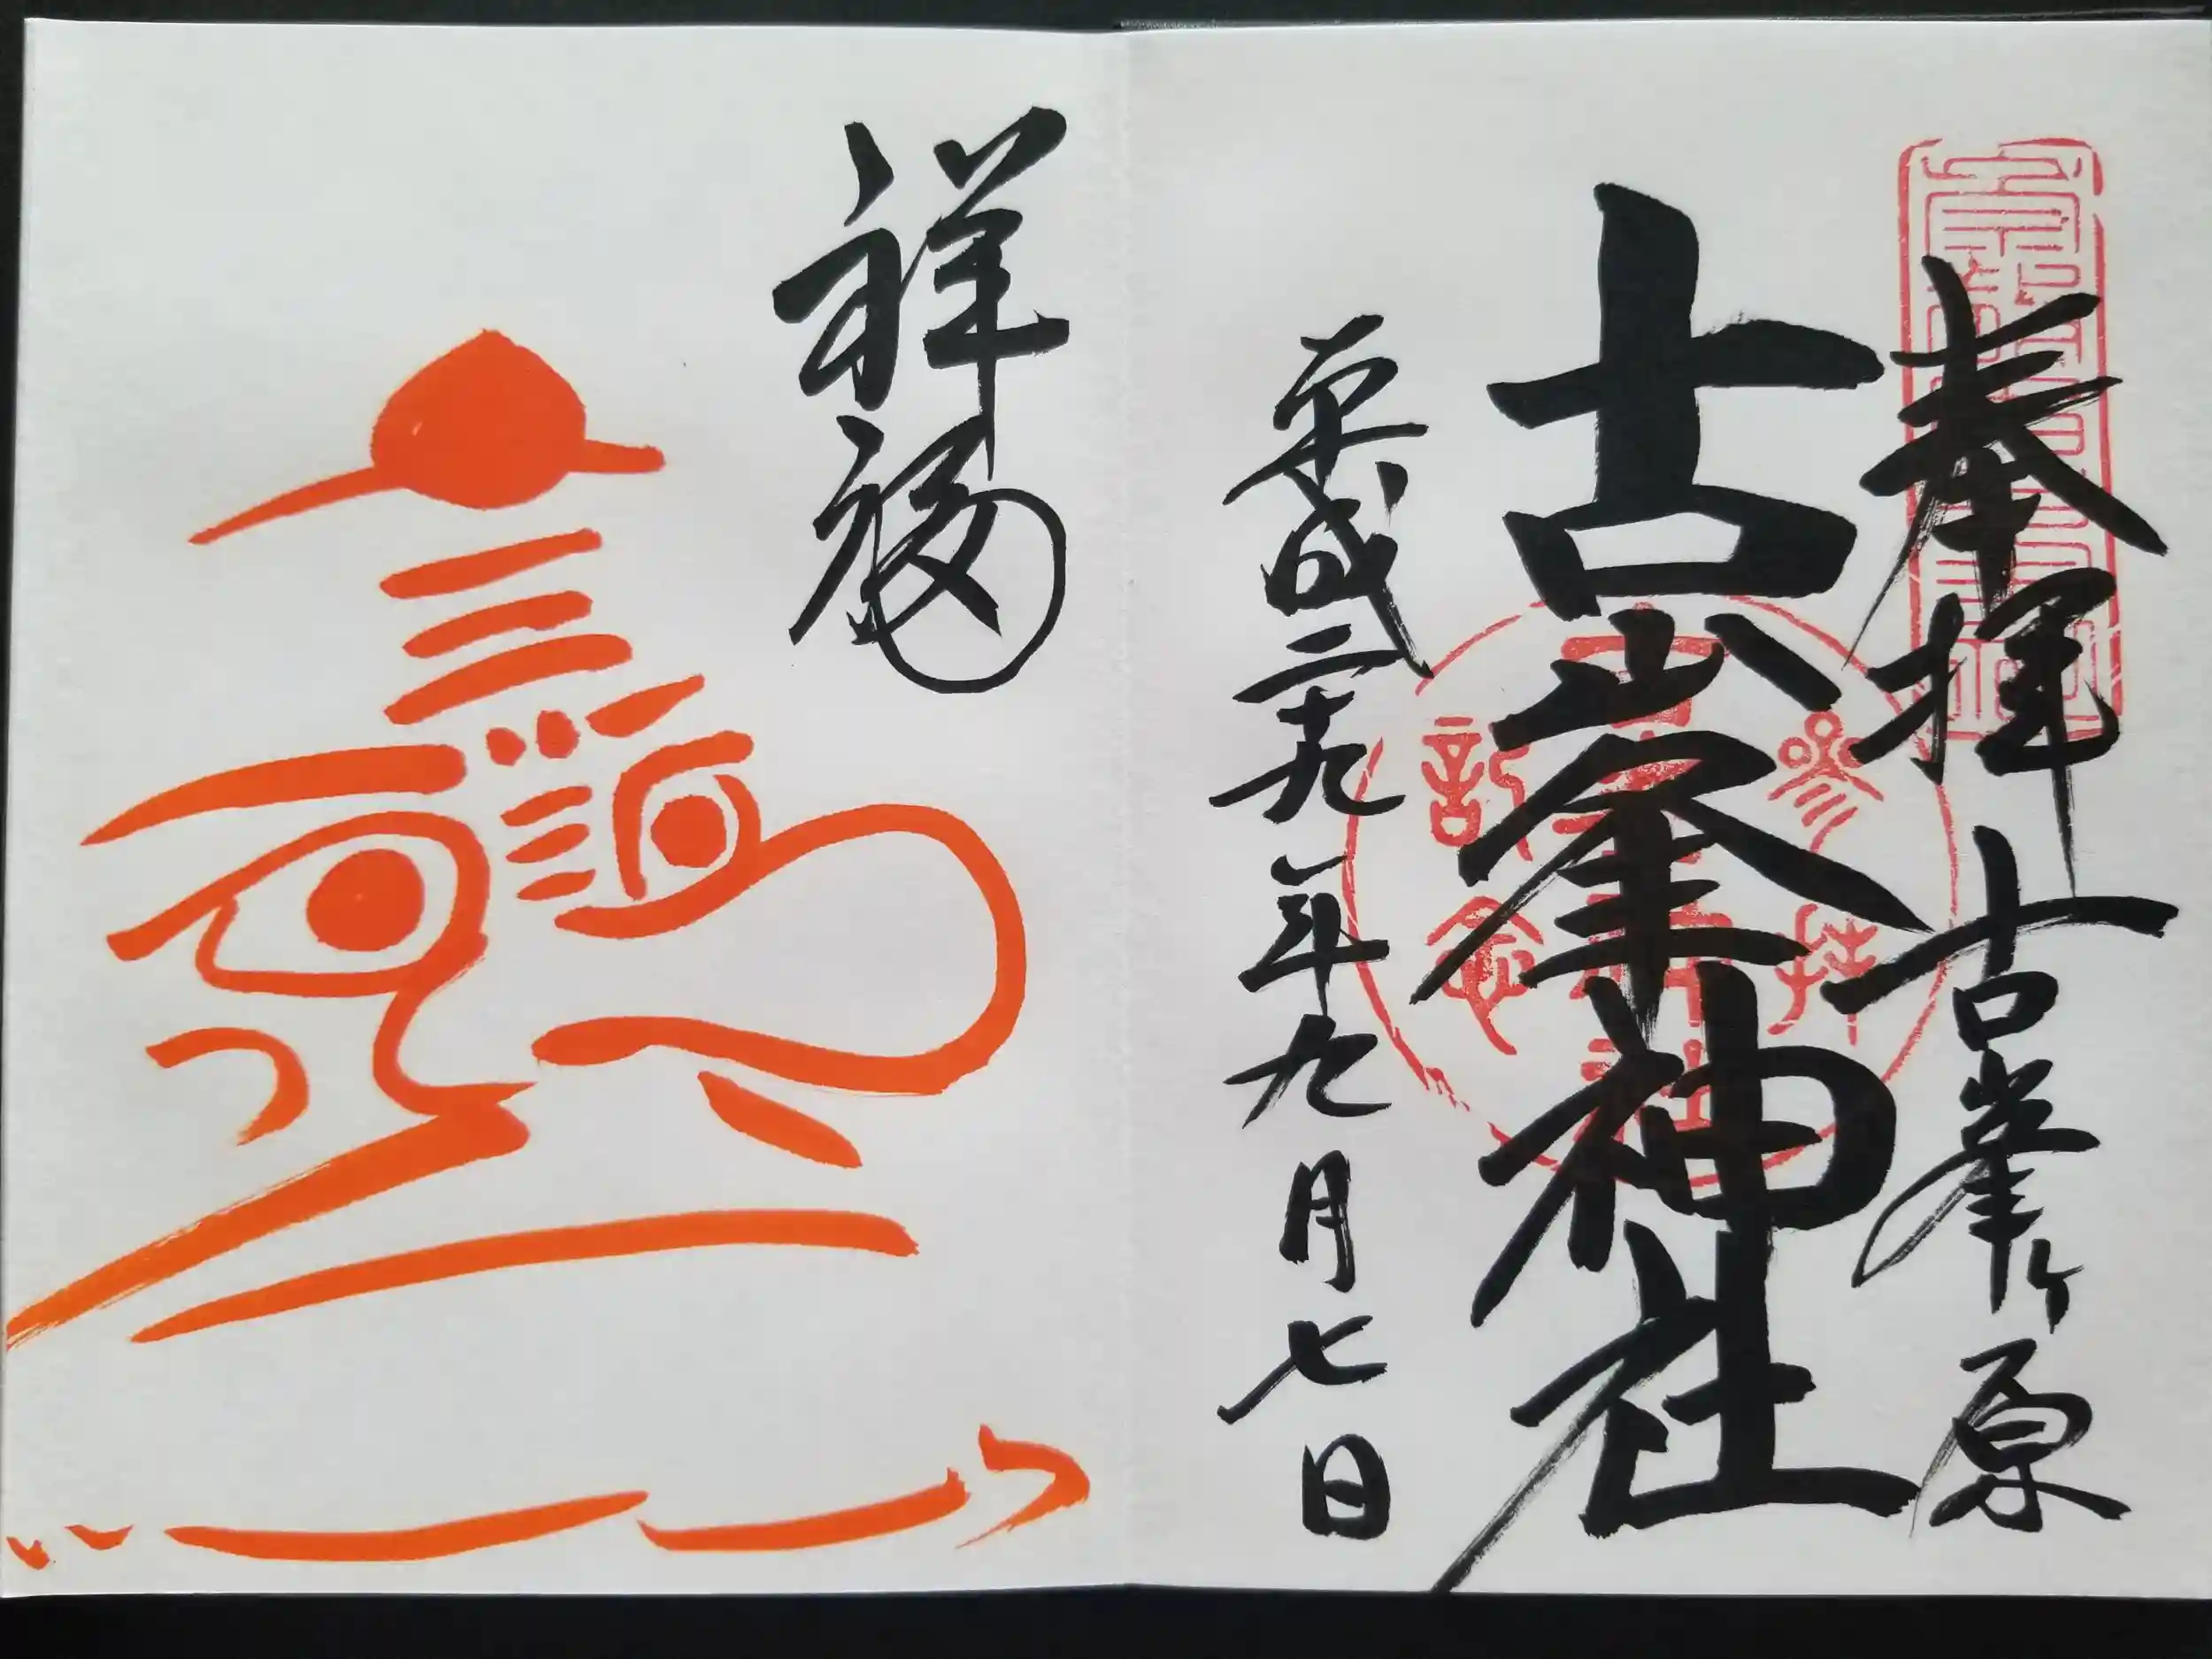 奉拝 古峯ヶ原
古峯神社
平成二十九年九月七日
祥福
参拝
記念